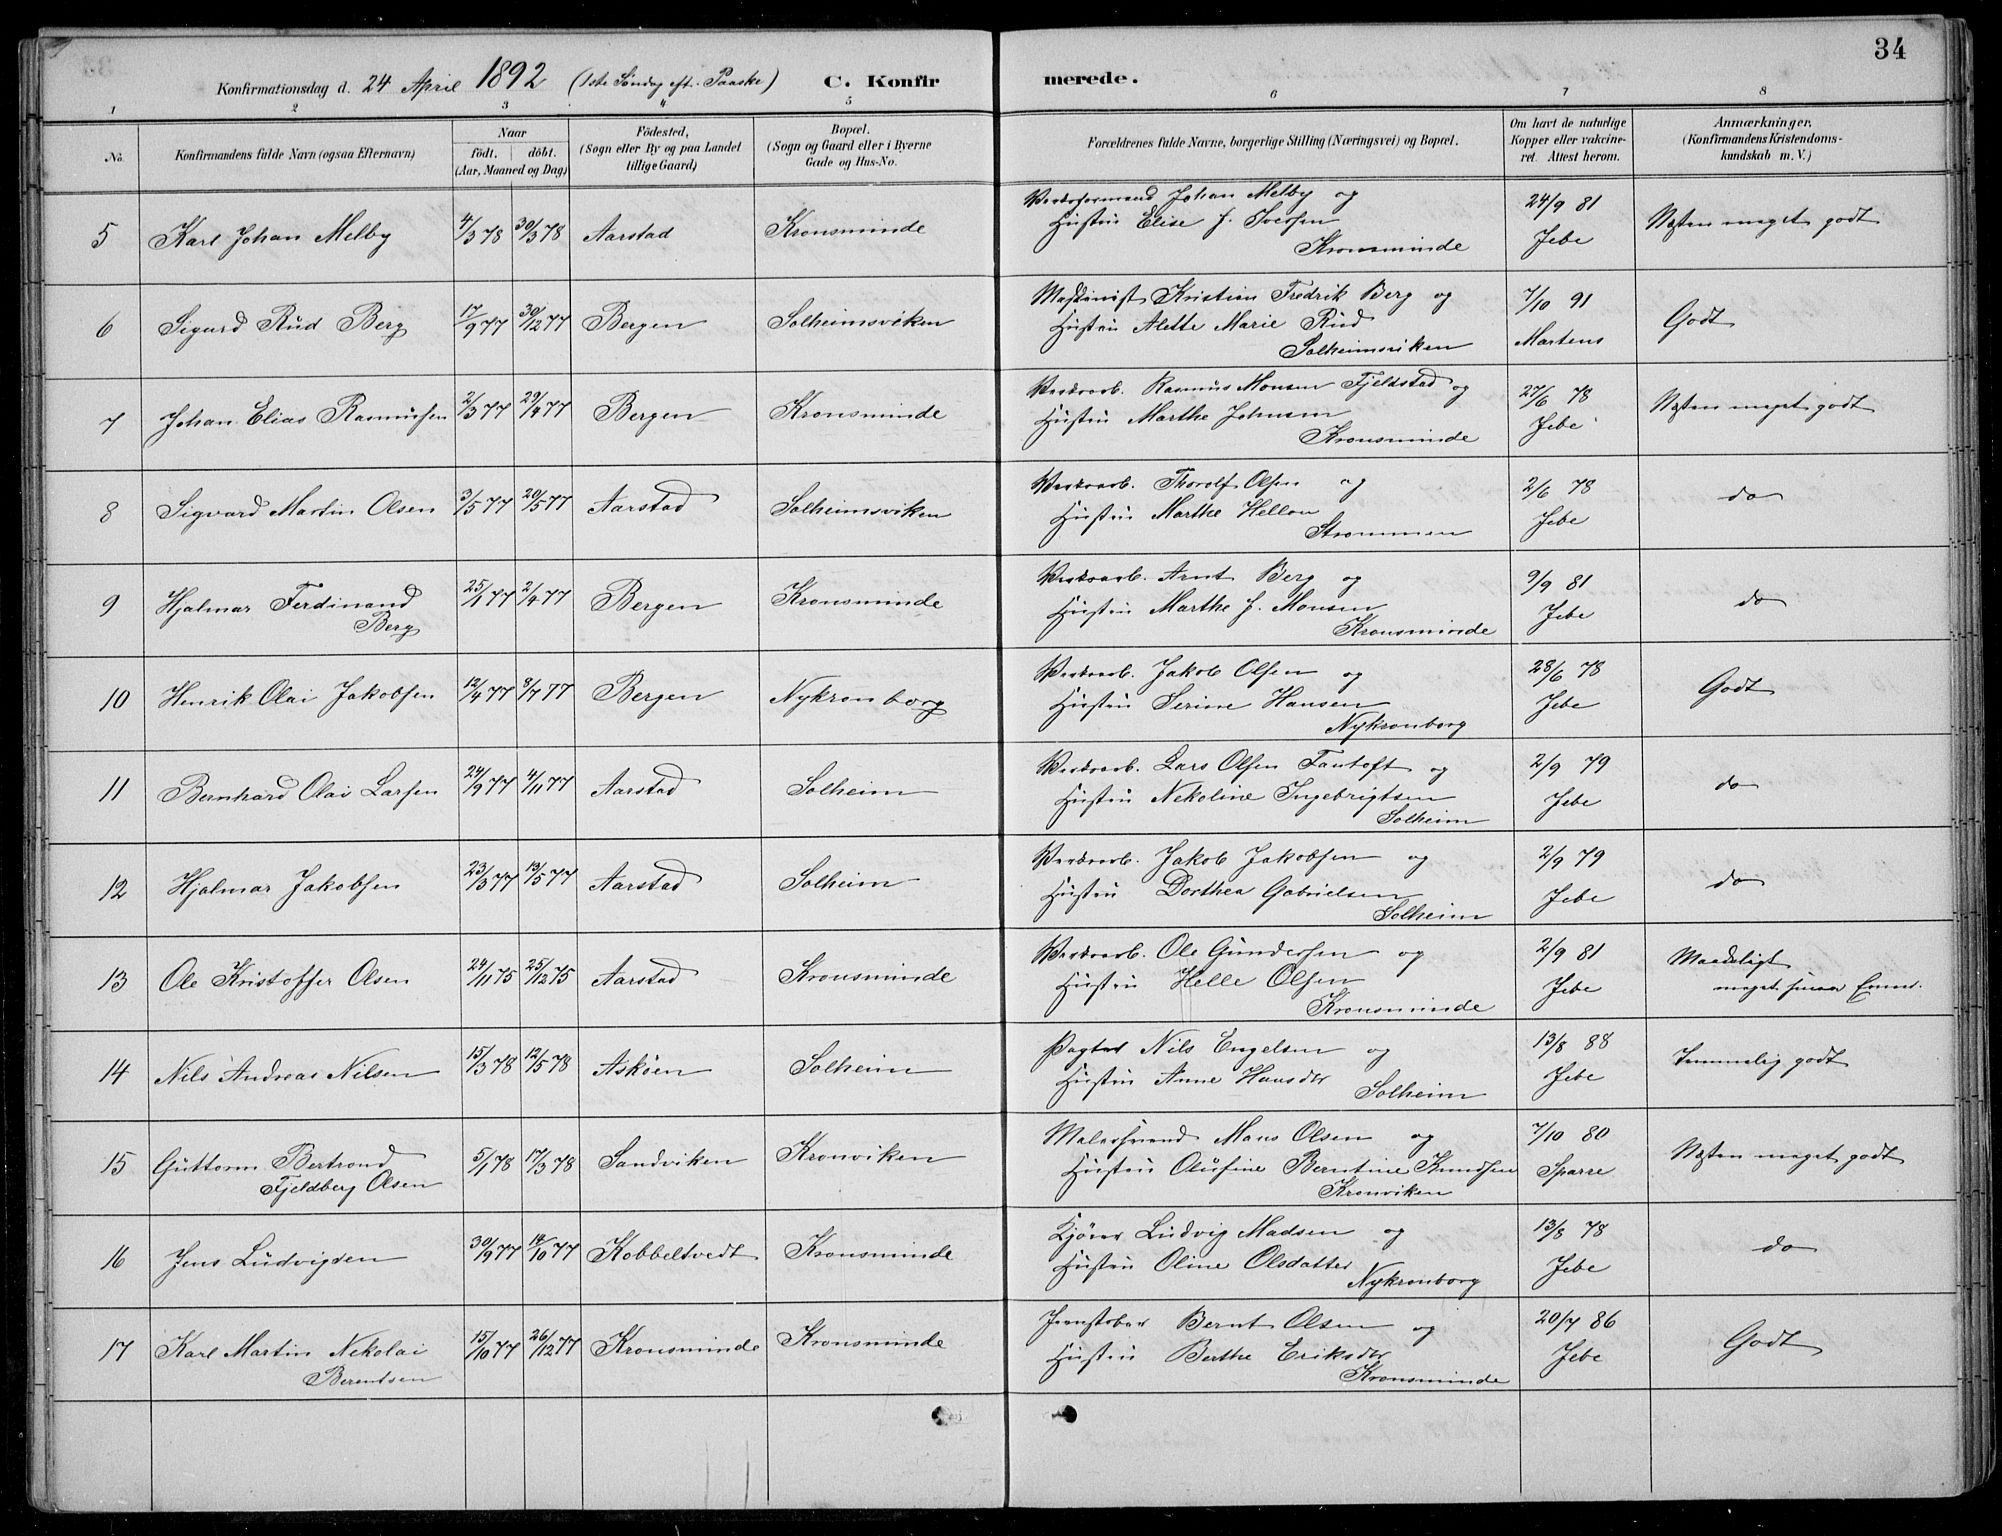 34
Konfirmationsdag d. 24 April 1892 (1ste Søndag eft. Paaske) C. Konfirmerede.
1 2 3 4 5 6 7 8
No. Konfirmandens fulde Navn (ogsaa Efternavn) Naar födt. döbt. (Aar, Maaned og Dag) Födested, (Sogn eller By og paa Landet tillige Gaard) Bopæl. (Sogn og Gaard eller i Byerne Gade og Hus-No. Forældrenes fulde Navne, borgerlige Stilling (Næringsvei) og Bopæl. Om havt de naturlige Kopper eller vakcineret. Attest herom. Anmærkninger. (Konfirmandens Kristendomskundskab m. V.)
5 Karl Johan Melby 4/3 78 30/3 78 Aarstad Kronsminde Værksformand Johan Melby og 24/9 81 Næsten meget godt
Hustru Elise J. Iversen Jebe
Kronsminde
6 Sigurd Rud Berg 17/9 77 30/12 77 Bergen Solheimsviken Maskinist Kristian Fredrik Berg og 7/10 91 Godt
Hustru Alette Marie Rud Martens
Solheimsviken
7 Johan Elias Rasmussen 2/3 77 29/4 77 Bergen Kronsminde Værksarb. Rasmus Monsen Fjeldstad og 27/6 78 Næsten meget godt
Hustru Marthe Johnsen Jebe
Kronsminde
8 Sigvard Martin Olsen 3/5 77 20/5 77 Aarstad Solheimsviken Værksarb. Thorolf Olsen og 2/6 78 do
Hustru Marthe Jebe
Strømmen
9 Hjalmar Ferdinand Berg 25/1 77 2/4 77 Bergen Kronsminde Værksarb. Arnt Berg og 9/9 81 do
Hustru Marthe J. Monsen Jebe
Kronsminde
10 Henrik Olai Jakobsen 12/4 77 8/7 77 Bergen Nykronborg Værksarb. Jakob Olsen og 28/6 78 Godt
Hustru Serine Hansen Jebe
Nykronborg
11 Bernhard Olai Larsen 24/9 77 4/11 77 Aarstad Solheim Værksarb. Lars Olsen Fantoft og 2/9 79 do
Hustru Nekoline Ingebrigtsen Jebe
Solheim
12 Hjalmar Jakobsen 23/3 77 13/5 77 Aarstad Solheim Værksarb. Jakob Jakobsen og 2/9 79 do
Hustru Dorthea Gabrielsen Jebe
Solheim
13 Ole Kristoffer Olsen 24/11 75 25/12 75 Aarstad Kronsminde Værksarb. Ole Gundersen og 2/9 81 Maadeligt
Hustru Helle Olsen Jebe meget smaa
Kronsminde
14 Nils Andreas Nilsen 15/3 78 12/5 78 Askøen Solheim Nils Engelsen og 13/8 88 Temmelig godt
Hustru Anne Hansdtr Jebe
Solheim
15 Guttorm Bertrand Fjeldberg Olsen 5/1 78 17/3 78 Sandviken Kronviken Malersvend Mons Olsen og 7/10 80 Næsten meget godt
Hustru Olufine Berntine Knudsen Sparre
Kronviken
16 Jens Ludvigsen 30/9 77 14/10 77 Kobbeltvedt Kronsminde Kjører Ludvig Madsen og 13/8 78 do
Hustru Oline Olsdatter Jebe
Nykronborg
17 Karl Martin Nekolai Berentsen 15/10 77 26/12 77 Kronsminde Kronsminde Jernstøber Bernt Olsen og 20/7 86 Godt
Hustru Berthe Eriksdtr Jebe
Kronsminde